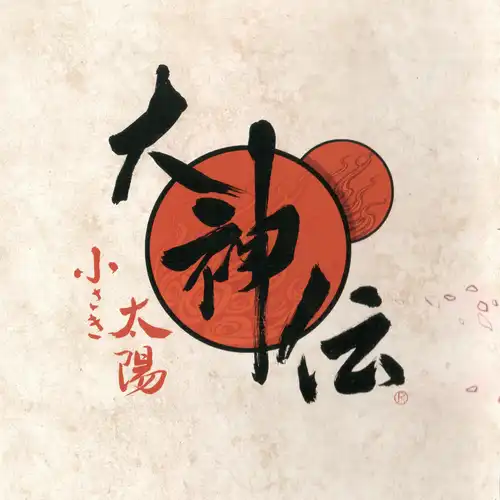 大神伝
小さき
太陽
®